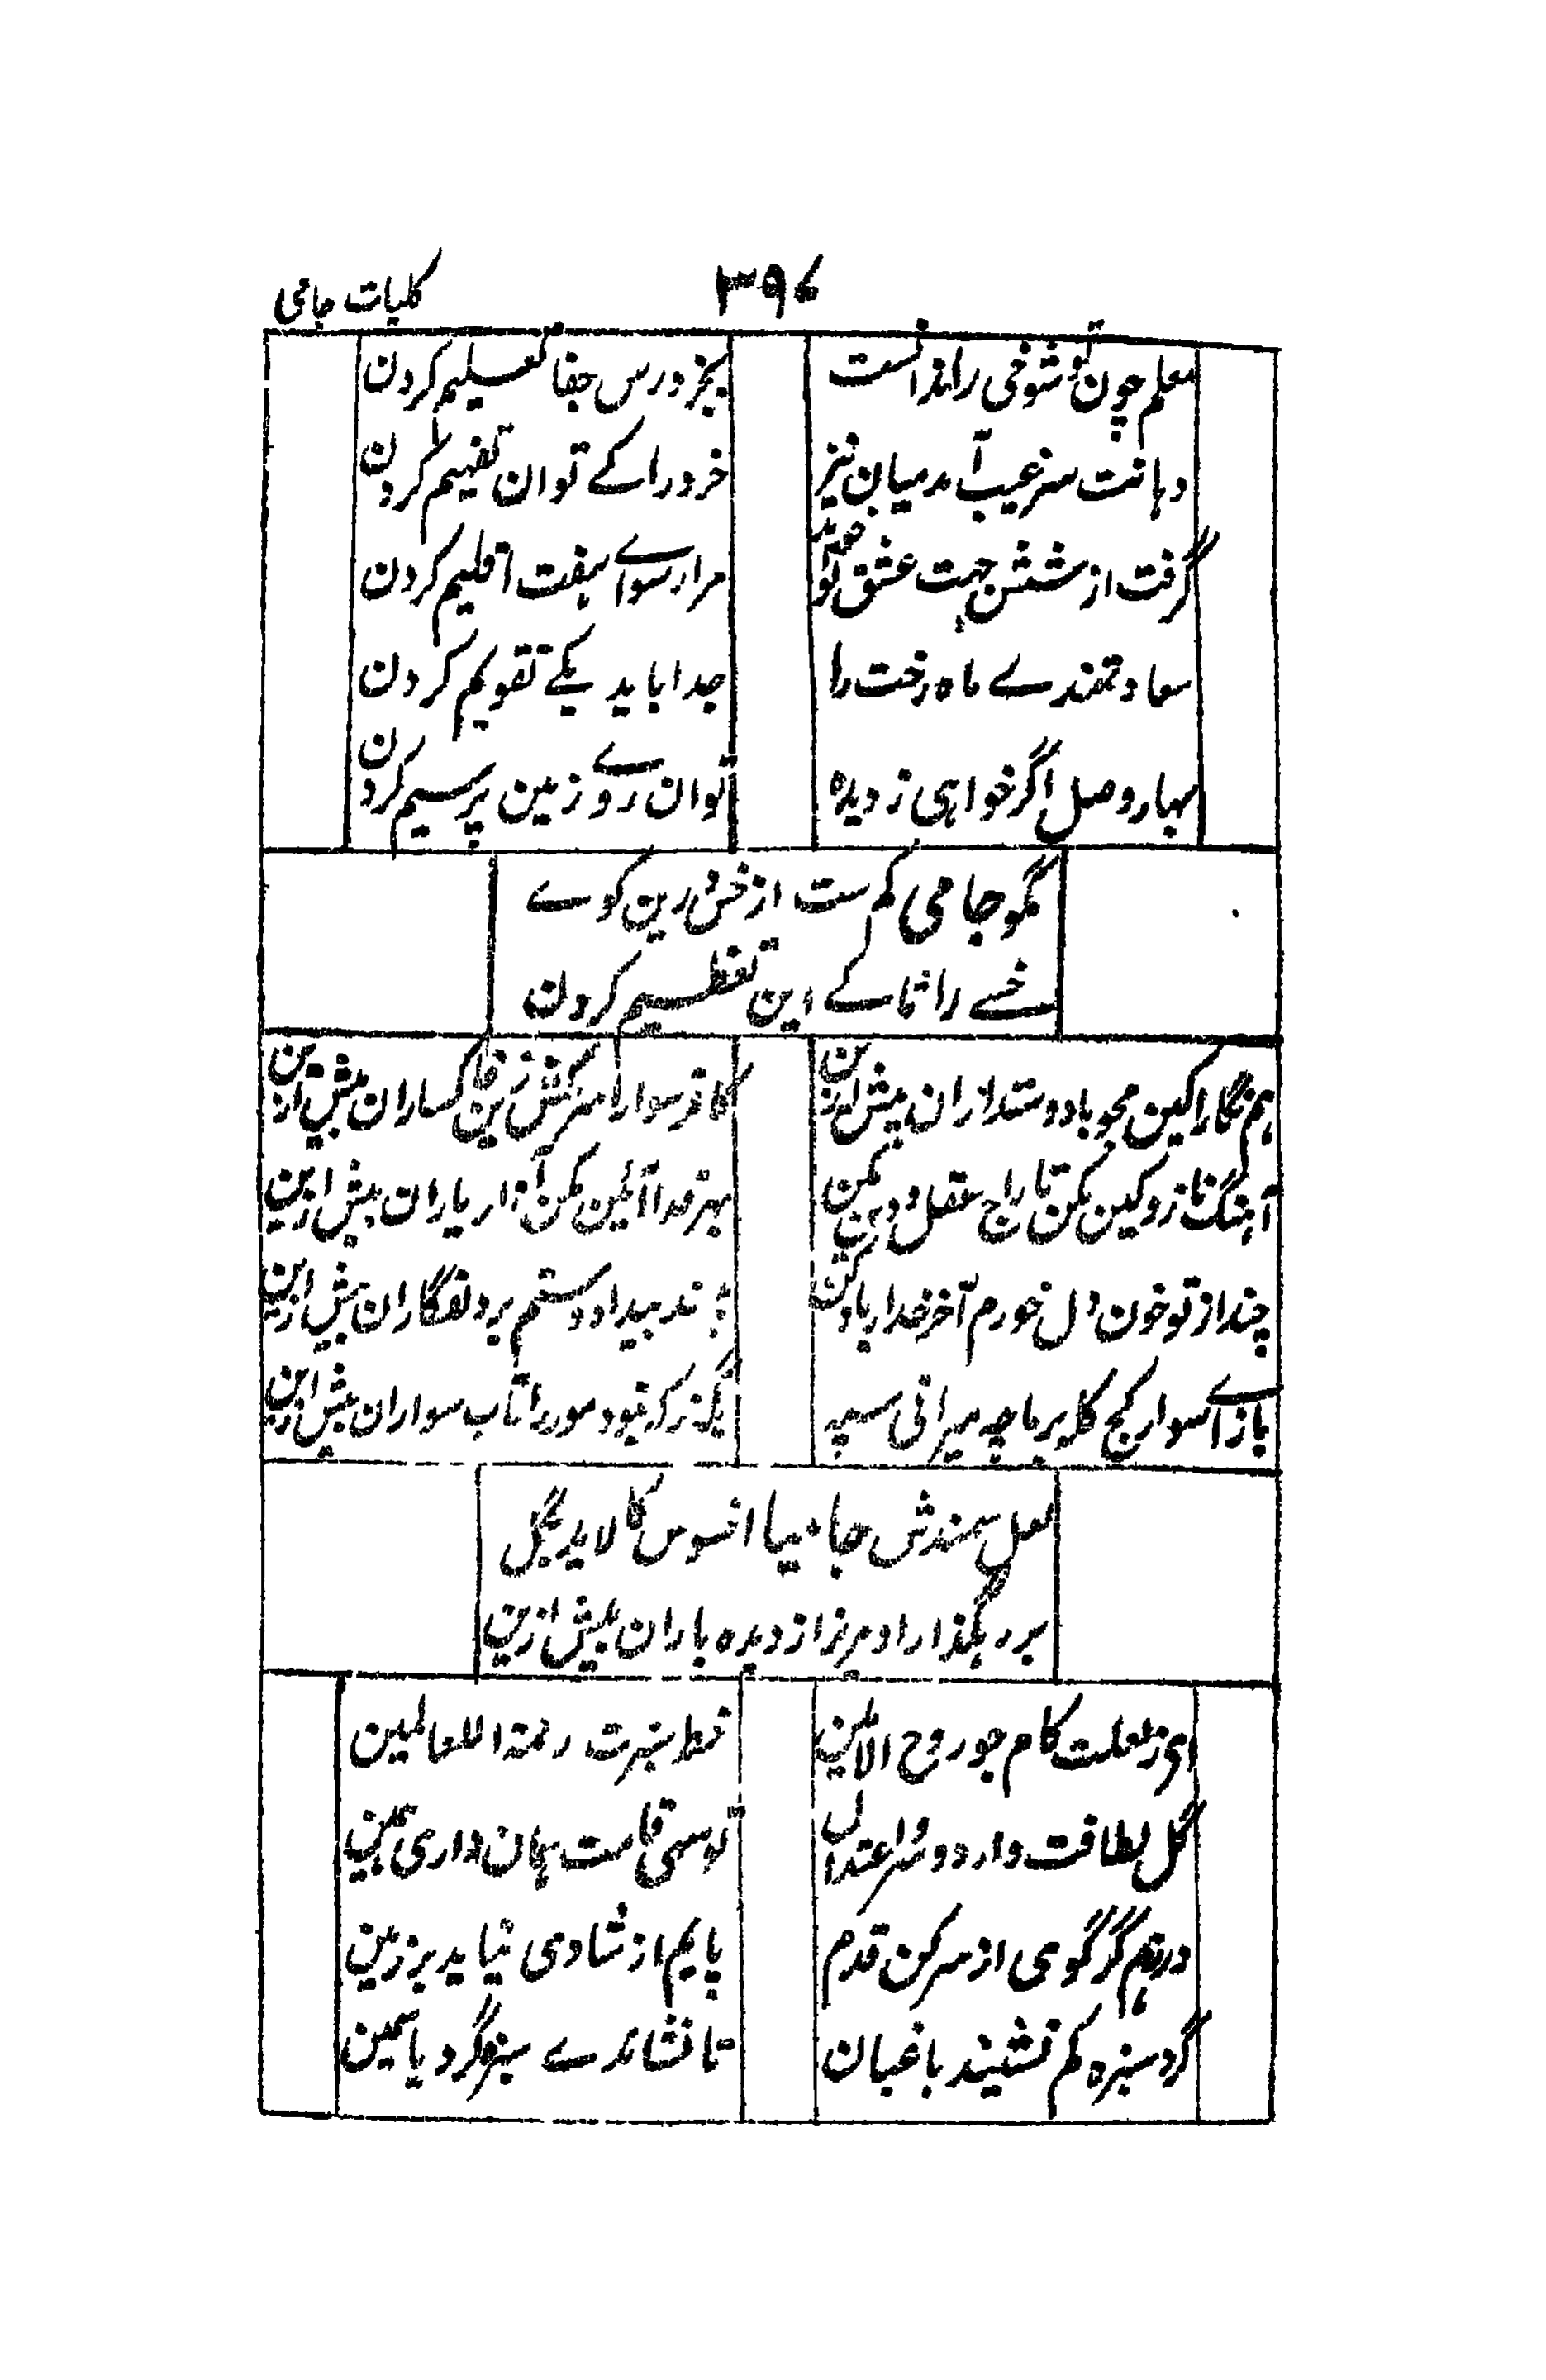 کلیات جامی
۳۹۷
معلم چون تو شوخی را ندانست
بجز درس جفا تعلیم کردن
دہانت سر غیب آمد میان نیز
خرد را کے توان تفہیم کردن
گرفت از شش جہت عشق تو
مرا رسوائے ہفت اقلیم کردن
سعادتمندے ماہ رخت را
جدا باید یکے تقویم کردن
بہار وصل اگر خواہی ز دیدہ
توان روے زمین پرسیم کردن
مگو جامی کم ست از خس درین کوے
خسے را تا کے این تعظیم کردن
ہم نگارا کین مجو با دوستداران بیش ازین
سوارا سرمکش زین خاکساران بیش ازین
آہنگ ناز و کین مکن تاراج عقل و دین مکن
بہر خدا آئین مکن آزار یاران بیش ازین
چند از تو خون دل خورم آخر خدا را یاد کن
بیداد و ستم بر دلفگاران بیش ازین
باز اے سوار کج کلہ بر ما چہ میرانی سپہ
بگذر کہ نبود مور را تاب سواران بیش ازین
لعل سمندش جامیا افسوس کالاید بگل
بر رہگذار او مریز از دیدہ باران بیش ازین
ای ز لعلت کام جو روح الامین
خط سبزت رحمۃ اللعالمین
گل لطافت دارد و سرو اعتدال
تو سہی قامت ہمان داری ہمین
در رہم گر گوی از سر کن قدم
پایم از شادی نیاید بر زمین
گرد سبزہ کم نشیند باغبان
تا نشاندے سبزہ گرد یاسمین